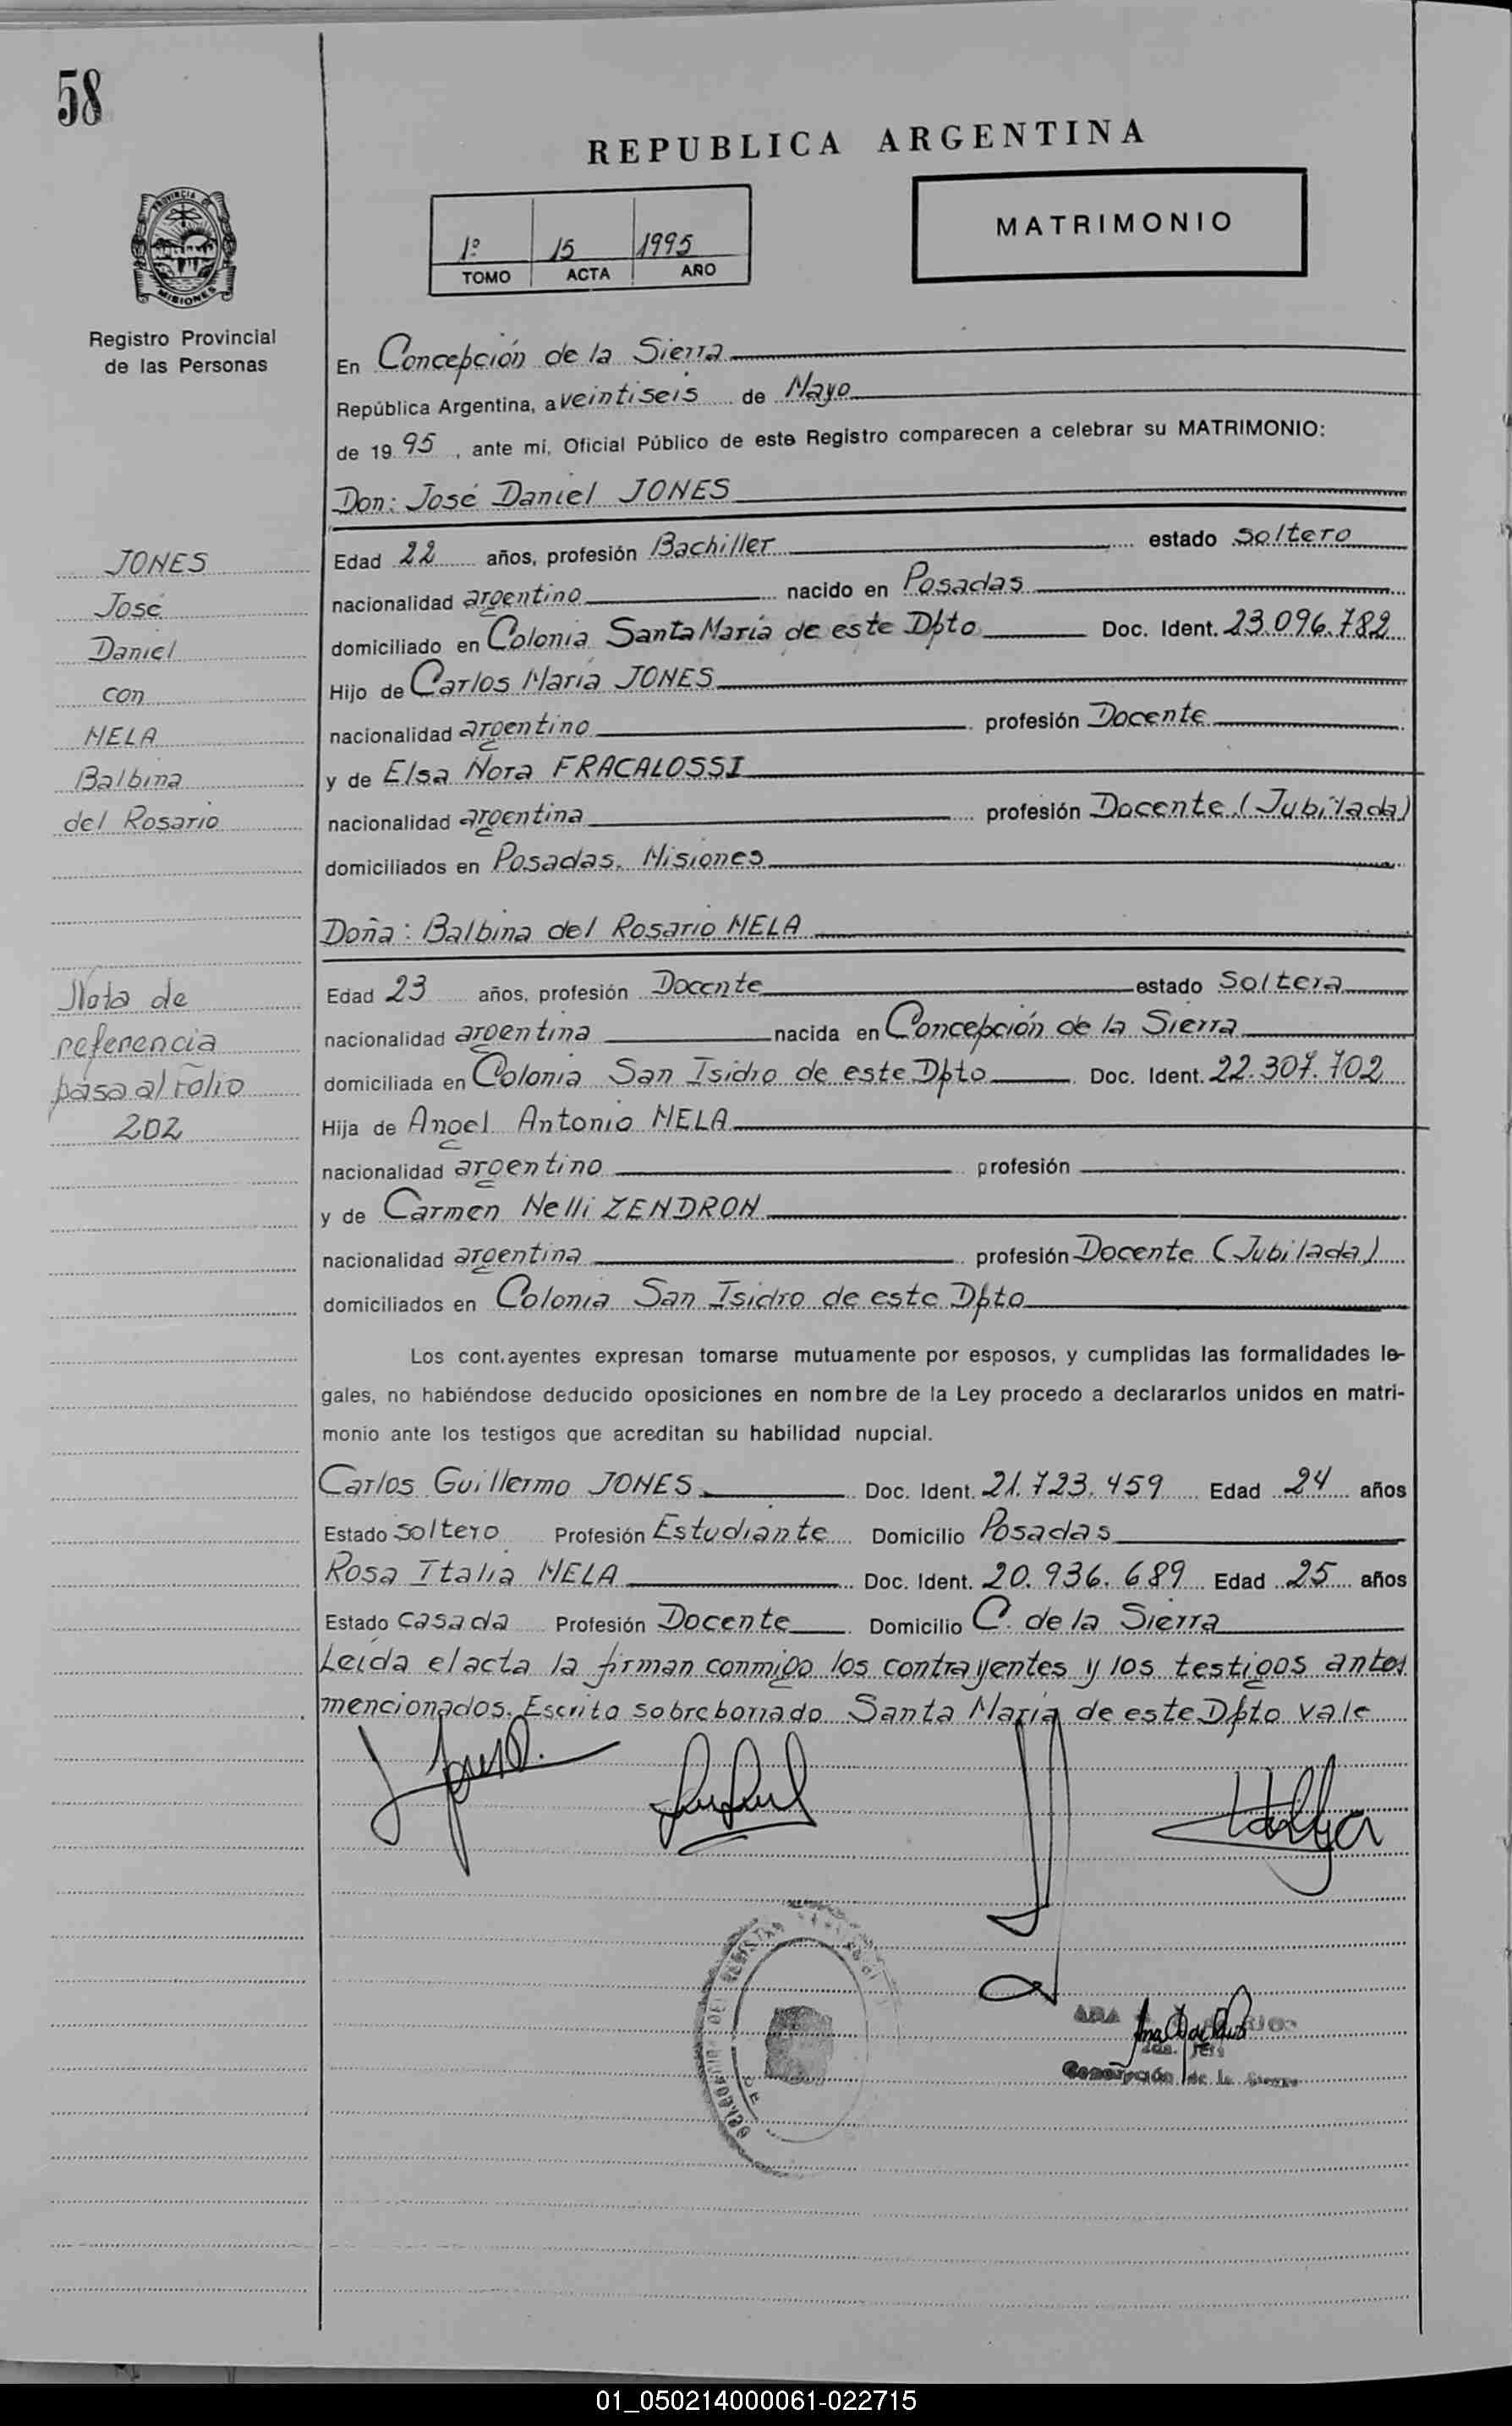 58
REPUBLICA ARGENTINA
1º 15 1995
TOMO ACTA AÑO
MATRIMONIO
PROVINCIA DE
MISIONES
Registro Provincial
de las Personas
En Concepción de la Sierra
República Argentina, a veintiseis de Mayo
de 1995, ante mi, Oficial Público de este Registro comparecen a celebrar su MATRIMONIO:
Don: José Daniel JONES
Edad 22 años, profesión Bachiller estado soltero
nacionalidad argentino nacido en Posadas
domiciliado en Colonia Santa María de este Dpto Doc. Ident. 23.096.782
Hijo de Carlos María JONES
nacionalidad argentino profesión Docente
y de Elsa Nora FRACALOSSI
nacionalidad argentina profesión Docente (Jubilada)
domiciliados en Posadas. Misiones
Doña: Balbina del Rosario MELA
Edad 23 años, profesión Docente estado Soltera
nacionalidad argentina nacida en Concepción de la Sierra
domiciliada en Colonia San Isidro de este Dpto Doc. Ident. 22.307.702
Hija de Angel Antonio MELA
nacionalidad argentino profesión
y de Carmen Nelli ZENDRON
nacionalidad argentina profesión Docente (Jubilada)
domiciliados en Colonia San Isidro de este Dpto
Los cont.ayentes expresan tomarse mutuamente por esposos, y cumplidas las formalidades le-
gales, no habiéndose deducido oposiciones en nombre de la Ley procedo a declararlos unidos en matri-
monio ante los testigos que acreditan su habilidad nupcial.
Carlos Guillermo JONES Doc. Ident. 21.723.459 Edad 24 años
Estado soltero Profesión Estudiante Domicilio Posadas
Rosa Italia MELA Doc. Ident. 20.936.689 Edad 25 años
Estado casada Profesión Docente Domicilio C. de la Sierra
Leída el acta la firman conmigo los contrayentes y los testigos antes
mencionados. Escrito sobreborrado Santa María de este Dpto vale
JONES
José
Daniel
con
MELA
Balbina
del Rosario
Nota de
referencia
pasa al Folio
202
ANA
Concepción de la Sierra
01_050214000061-022715